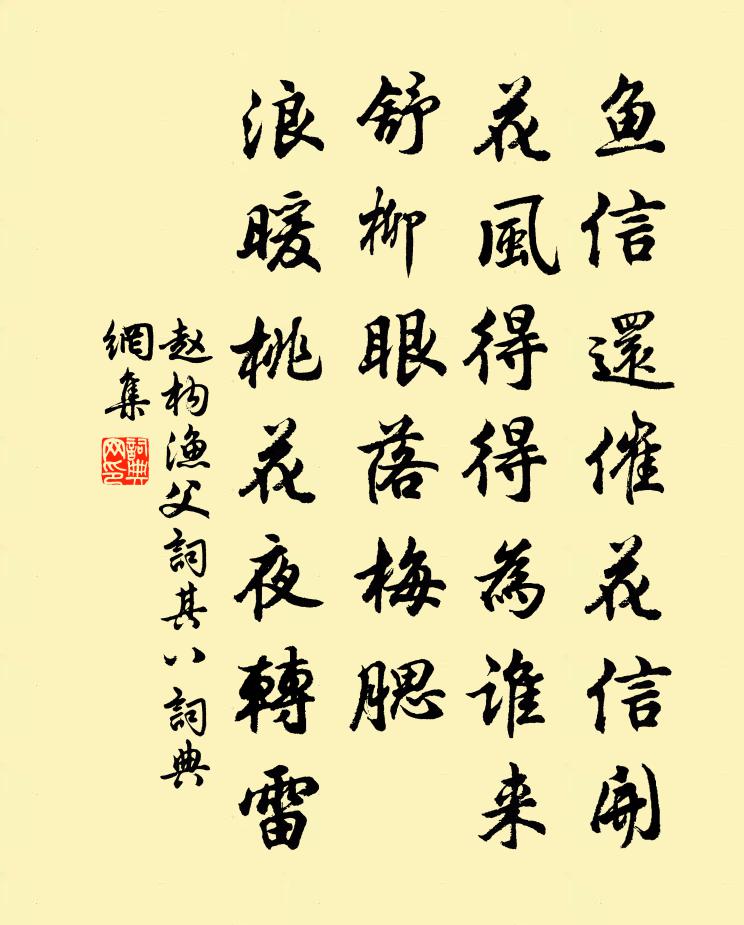 鱼信還催花信開
花風得得為誰来
舒柳眼落梅腮
浪暖桃花夜轉雷
赵构漁父詞其八詞典
網集
詞典
网印